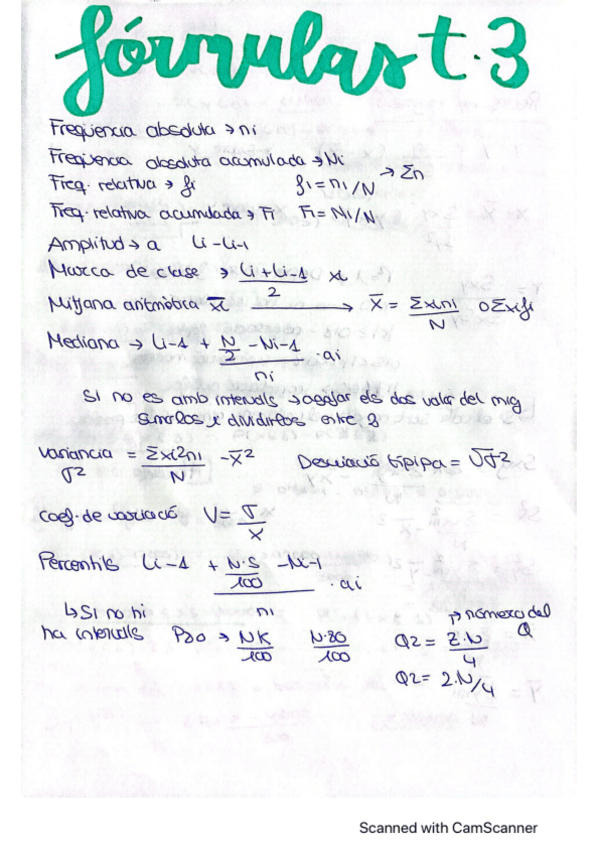 fórmulas t.3
Freqüencia absoluta → ni
Freqüencia absoluta acumulada → Ni
→ Σn
Freq. relativa → fi fi = ni/N
Freq. relativa acumulada → Fi Fi = Ni/N
Amplitud → a Li - Li-1
Marca de clase → Li + Li-1 / 2 xi
Mitjana aritmètica x̄ → x̄ = Σxini / N o Σxifi
Mediana → Li-1 + N/2 - Ni-1 / ni · ai
Si no es amb intervals → agafar els dos valor del mig
sumarlos y dividirlos entre 2
Variancia σ2 = Σxi2ni / N - x̄2 Desviació típipa = √σ2
Coef. de variació V = σ / x
Percentils Li-1 + N·S/100 - Ni-1 / ni · ai
↳ Si no hi
ha intervals P80 → NK/100 N·80/100 Q2 = Z·N/4 → número del Q
Q2 = 2·N/4
Scanned with CamScanner